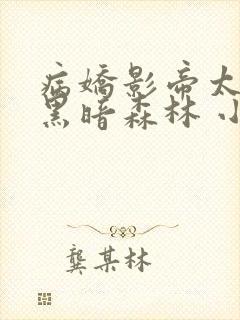 病嬌影帝太
黑暗森林 小
龔某林